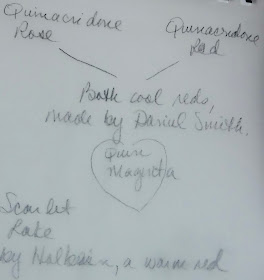 Quinacridone
Rose
Quinacridone
Red
Both cool reds,
made by Daniel Smith.
Quin
Magenta
Scarlet
Lake
by Holbein, a warm red